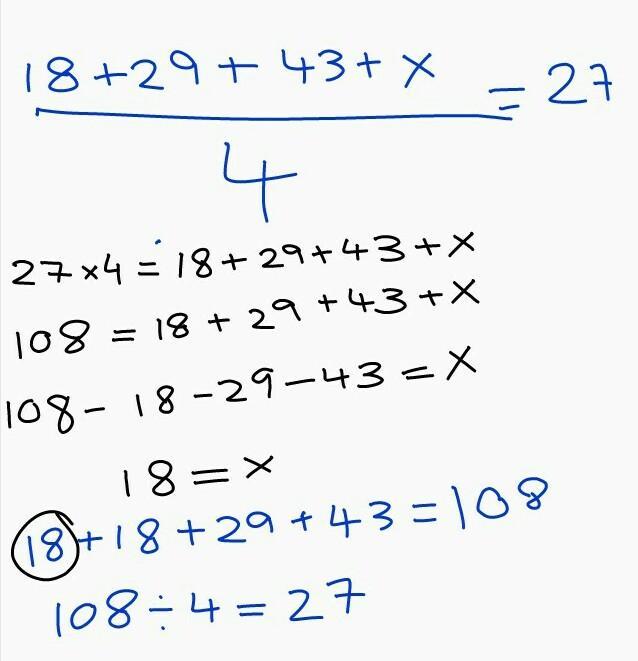 18+29+43+x = 27
4
27×4=18+29+43+x
108=18+29+43+x
108-18-29-43=x
18=x
18+18+29+43=108
108÷4=27